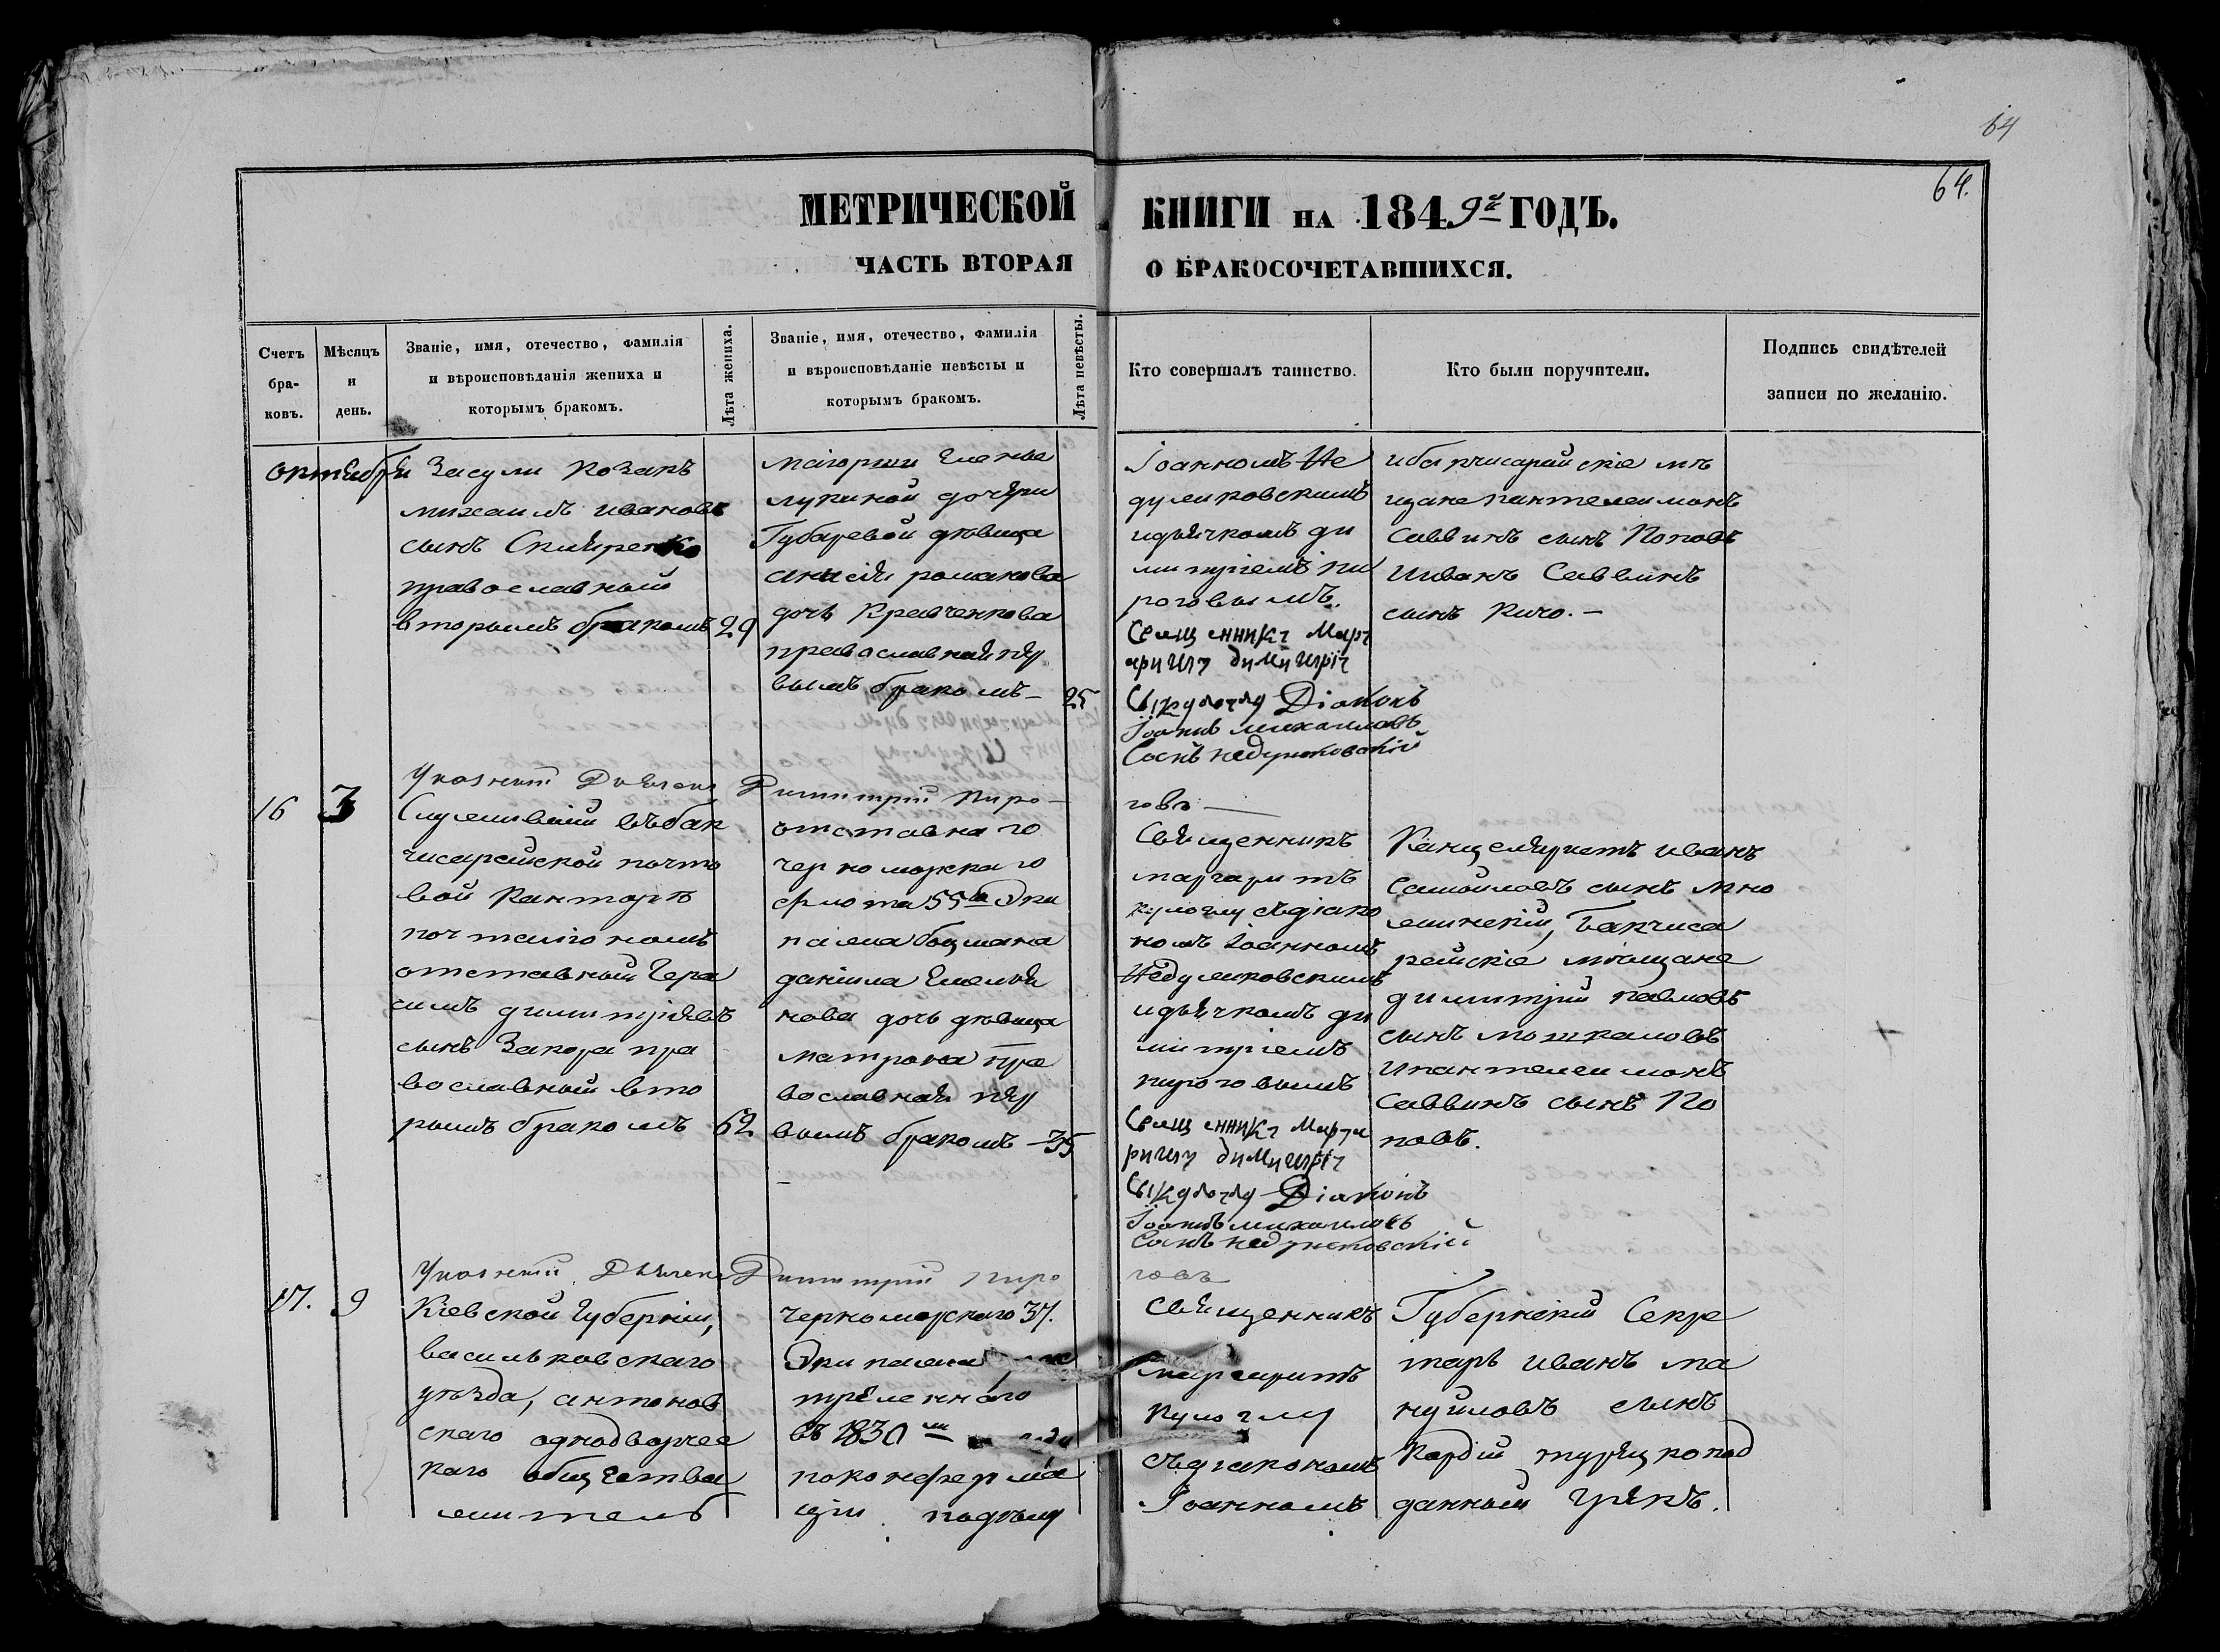 64
64.
МЕТРИЧЕСКОЙ КНИГИ НА 1849й ГОДЪ.
ЧАСТЬ ВТОРАЯ О БРАКОСОЧЕТАВШИХСЯ.
Счетъ
бра-
ковъ.
Мѣсяцъ
и
день.
Званіе, имя, отечество, фамилія
и вѣроисповѣданія жениха и
которымъ бракомъ.
Лѣта жениха.
Званіе, имя, отечество, фамилія
и вѣроисповѣданіе невѣсты и
которымъ бракомъ.
Лѣта невѣсты.
Кто совершалъ таинство.
Кто были поручители.
Подпись свидѣтелей
записи по желанію.
октября
Засули козакъ
михаилъ ивановъ
сынъ
православный
вторымъ бракомъ 29
маіорши Елены
лукиной дочери
Губаревой дѣвица
анисія романова
дочь Кравченкова
православная пер
вымъ бракомъ— 25
Іоанномъ Не
дуликовскимъ
идьячкомъ ди
митріемъ пи
роговымъ.
Свящ енникъ Марг
аритъ димитрі
Діаконъ
Іоаннъ михаиловъ
Сынъ недуликовскій
ибахчисарайскіе мѣ
щане пантелеимонъ
Саввинъ сынъ Поповъ
Ииванъ Саввинъ
сынъ Кичо.—
Указный Дьячекъ Димитрій Пиро-
говъ—
16
3
Служившій въбах
чисарайской почто
вой Канторѣ
почталіономъ
отставный Гера
симъ димитріевъ
сынъ Закора пра
вославный вто
рымъ бракомъ 62
отставнаго
черноморскаго
флота 55го Эки
пажа боцмана
даніила Емелья
нова дочь дѣвица
матрона пра
вославная пер
вымъ бракомъ—35
Священникъ
маргаритъ
кулоглу съдіако
номъ Іоанномъ
Недуликовскимъ
идьячкомъ ди
митріемъ
пироговымъ
Свящ енникъ Марга
ритъ димитрі
Діаконъ
Іоаннъ михаиловъ
Сынъ недуликовскій
Канцеляристъ иванъ
Самойловъ сынъ мно
жинскій, Бакчиса
райскіе мѣщане
димитрій павловъ
сынъ мошкаловъ
ипантелеимонъ
саввинъ сынъ По
повъ.
Указный Дьячекъ Димитрій Пиро
говъ
17.
9
Кіевской губерніи,
васильковскаго
уѣзда, антонов
скаго однодворчес
каго общества
житель
черноморскаго 37.
Экипажа
трѣленнаго
въ 1830мъ
поконферма
ціи
Священникъ
маргаритъ
кулоглу
съдіакономъ
Іоанномъ
Губернскій Секре
тарь иванъ ма
нуиловъ сынъ
Кордій турецкопод
данный грекъ.